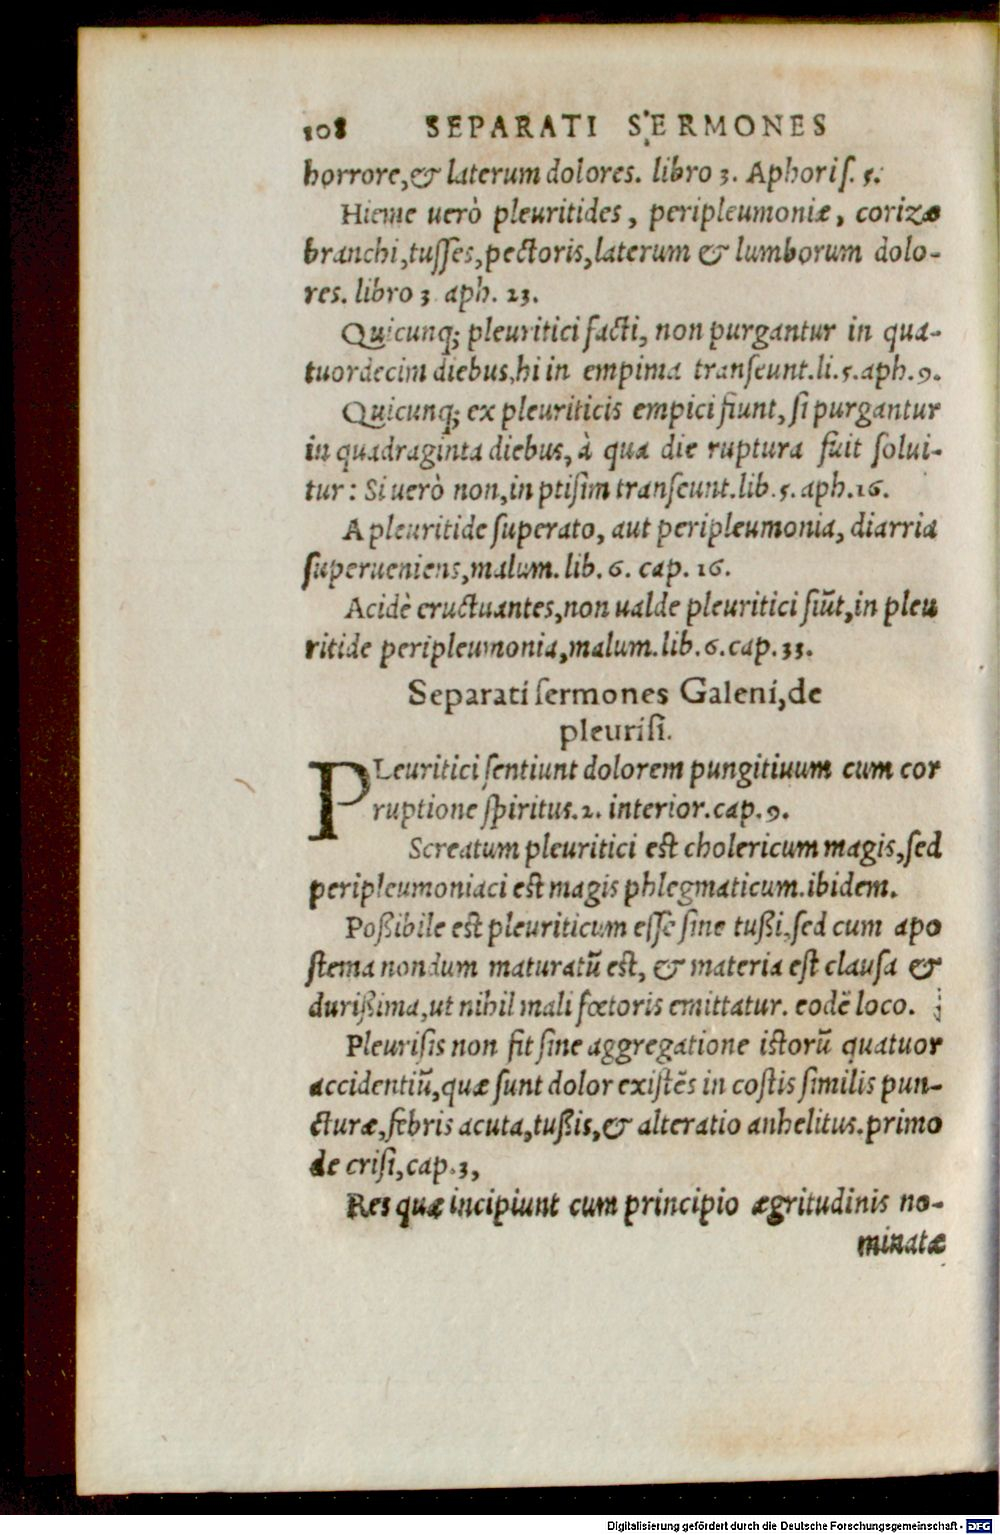 108 SEPARATI SERMONES
horrore,& laterum dolores. libro 3. Aphoriſ. 5.
Hieme uerò pleuritides, peripleumoniæ, corizæ
branchi,tuſſes,pectoris,laterum & lumborum dolo-
res. libro 3 aph. 23.
Quicunq; pleuritici facti, non purgantur in qua-
tuordecim diebus,hi in empima tranſeunt.li.5.aph.9.
Quicunq; ex pleuriticis empici fiunt, ſi purgantur
in quadraginta diebus, à qua die ruptura fuit ſolui-
tur: Si uerò non,in ptiſim tranſeunt.lib.5.aph.16.
A pleuritide ſuperato, aut peripleumonia, diarria
ſuperueniens,malum. lib. 6. cap. 16.
Acidè eructuantes,non ualde pleuritici fiũt,in pleu
ritide peripleumonia,malum.lib.6.cap.33.
Separati ſermones Galeni,de
pleuriſi.
PLeuritici ſentiunt dolorem pungitiuum cum cor
ruptione ſpiritus.2. interior.cap.9.
Screatum pleuritici est cholericum magis,ſed
peripleumoniaci est magis phlegmaticum.ibidem.
Poßibile est pleuriticum eſſe ſine tußi,ſed cum apo
ſtema nondum maturatũ est, & materia eſt clauſa &
durißima,ut nihil mali fœtoris emittatur. eodẽ loco.
Pleuriſis non fit ſine aggregatione istorũ quatuor
accidentiũ,quæ ſunt dolor exiſtẽs in coſtis ſimilis pun-
cturæ,febris acuta,tußis,& alteratio anhelitus.primo
de criſi,cap.3,
Res quæ incipiunt cum principio ægritudinis no-
minatæ
Digitalisierung gefördert durch die Deutsche Forschungsgemeinschaft - DFG